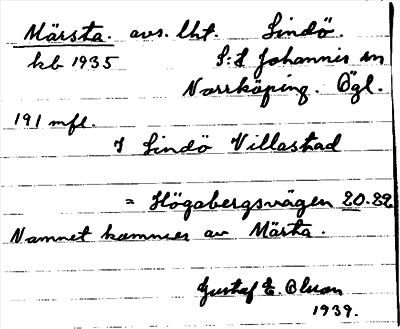 Märsta. avs. lht. Lindö.
kb 1935 S:t Johannis sn
Norrköping. Ögl.
191 mfl.
I Lindö Villastad
= Högabergsvägen 20-22
Namnet kommer av Märta.
Gustaf E. Olson
1939.